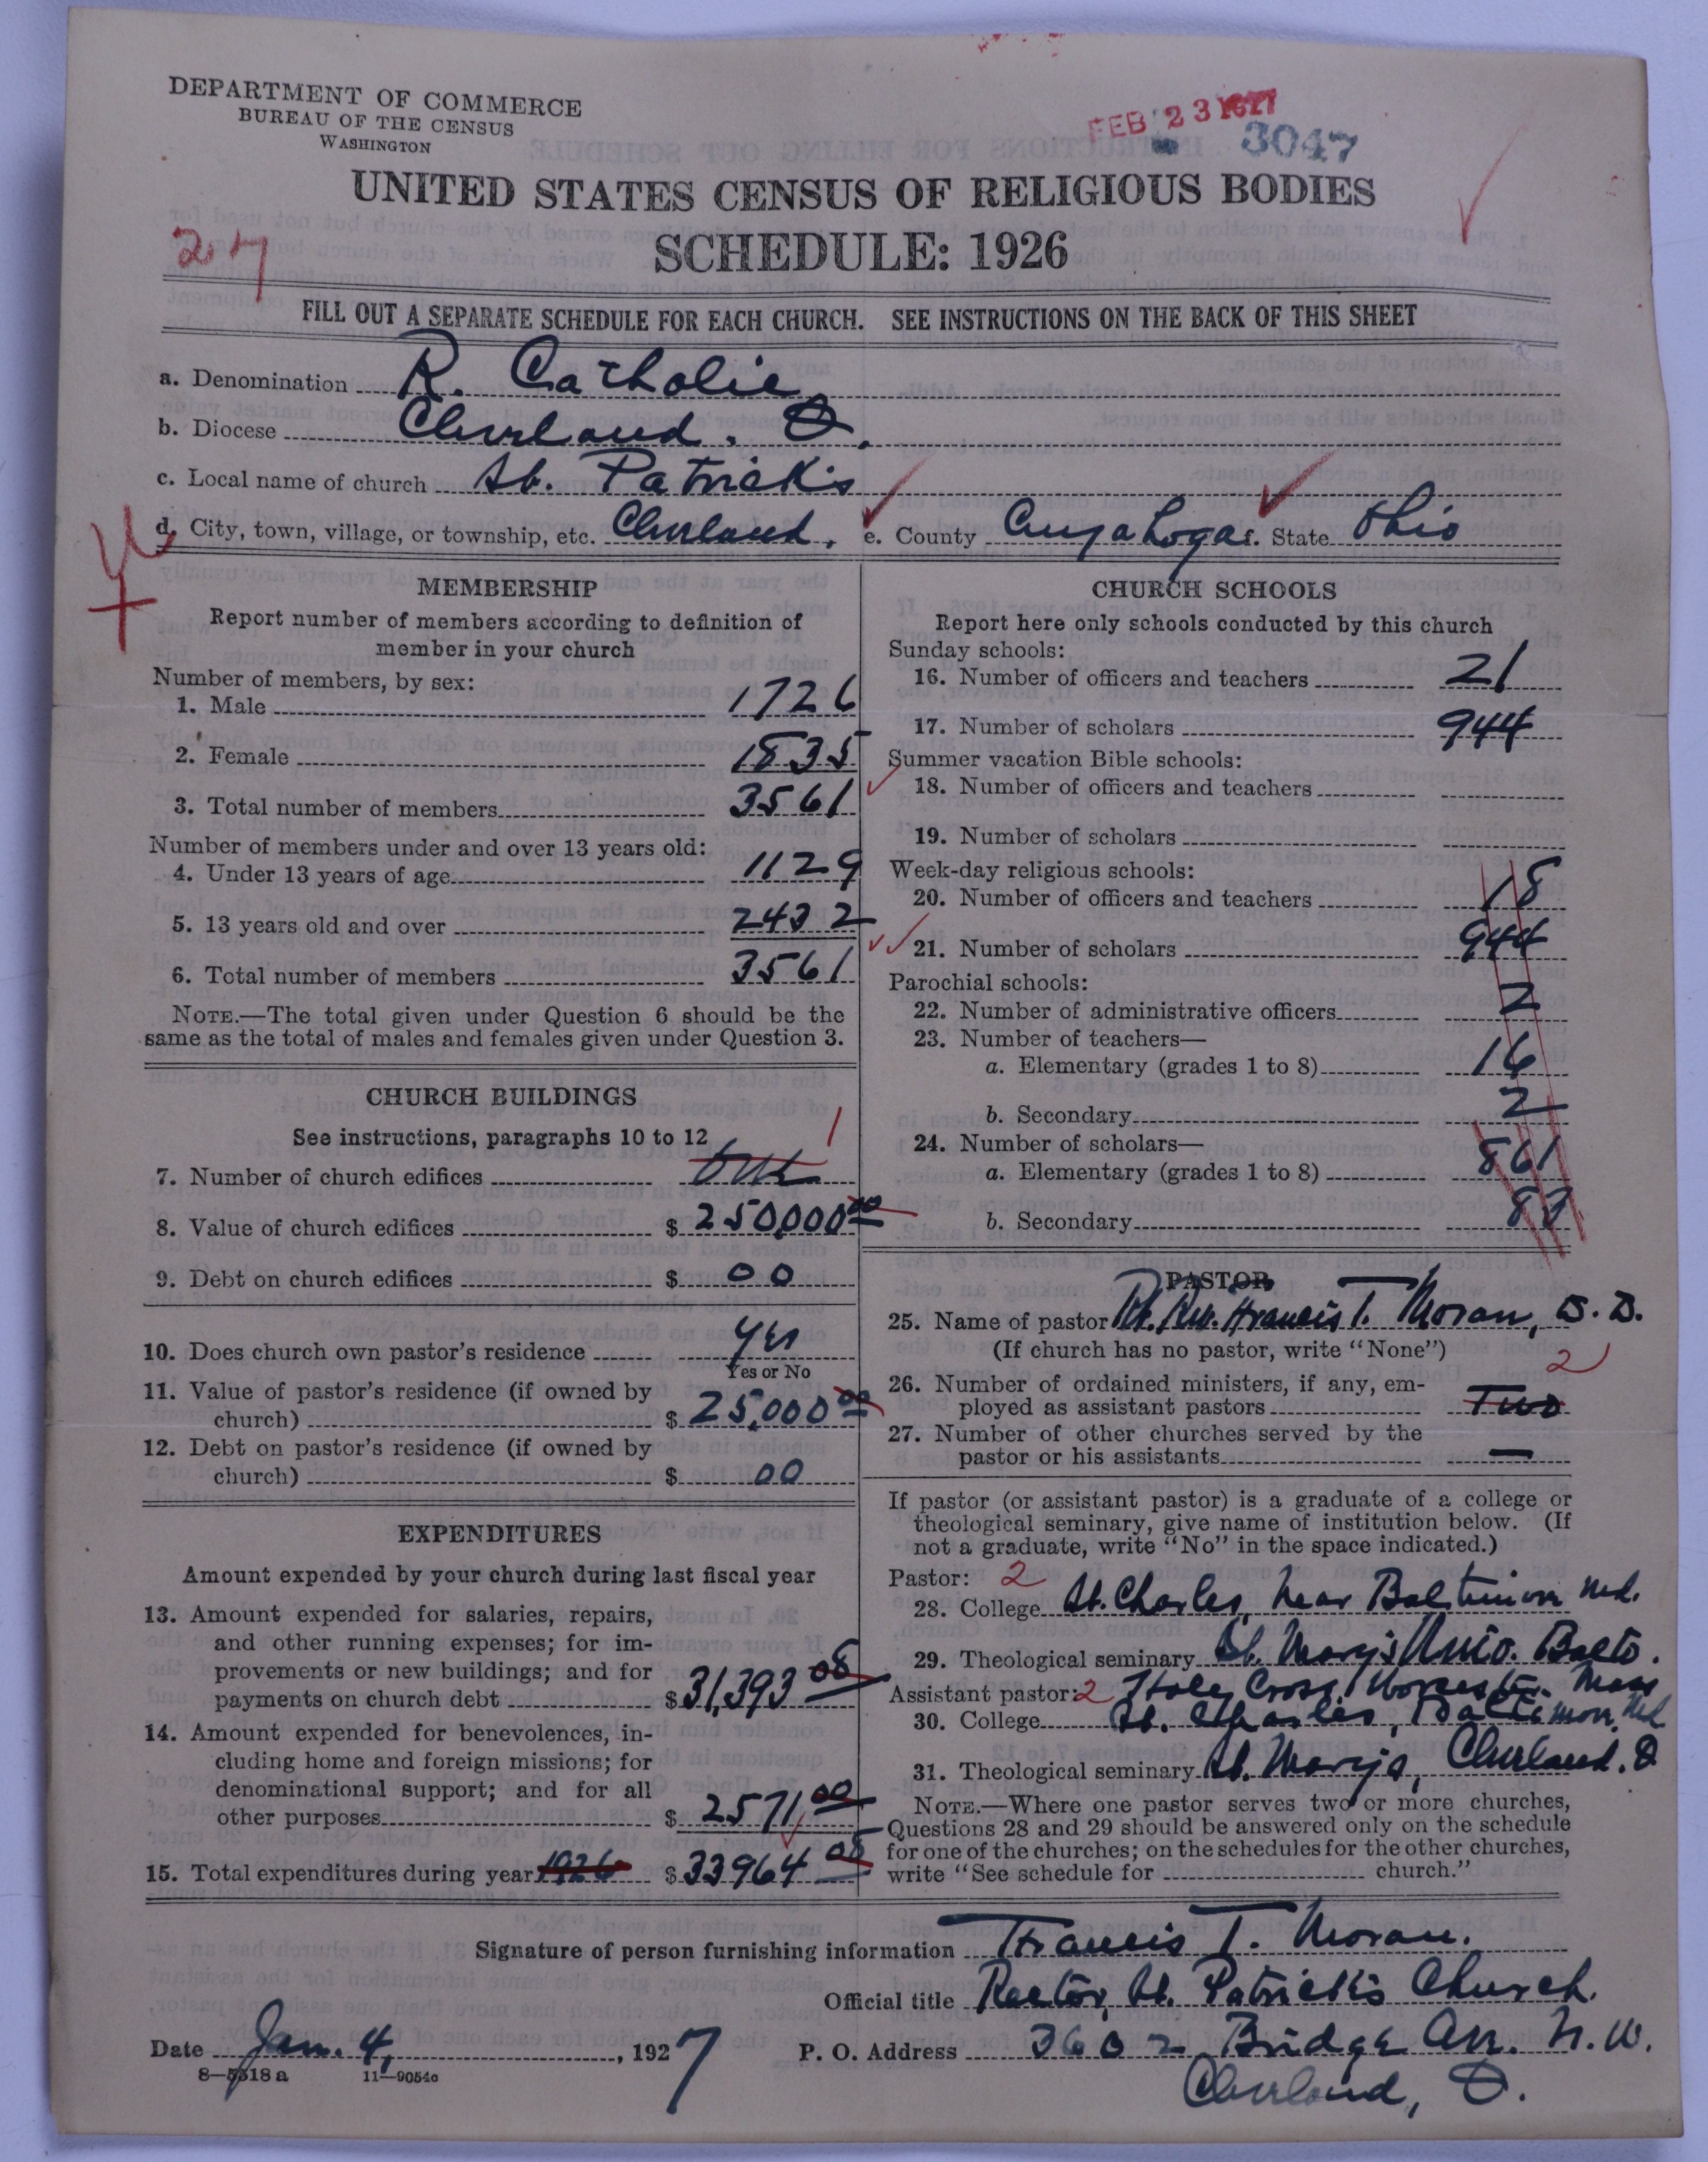 DEPARTMENT OF COMMERCE
BUREAU OF THE CENSUS
WASHINGTON
FEB 23 1927
3047
UNITED STATES CENSUS OF RELIGIOUS BODIES
SCHEDULE: 1926
FILL OUT A SEPARATE SCHEDULE FOR EACH CHURCH. SEE INSTRUCTIONS ON THE BACK OF THIS SHEET
a. Denomination R. Catholic
b. Diocese Cleveland. O.
c. Local name of church St. Patrick's
d. City, town, village, or township, etc. Cleveland. e. County Cuyahoga f. State Ohio
MEMBERSHIP
Report number of members according to definition of
member in your church
Number of members, by sex:
1. Male 1726
2. Female 1835
3. Total number of members 3561
Number of members under and over 13 years old:
4. Under 13 years of age 1129
5. 13 years old and over 2432
6. Total number of members 3561
NOTE.—The total given under Question 6 should be the
same as the total of males and females given under Question 3.
CHURCH BUILDINGS
See instructions, paragraphs 10 to 12
7. Number of church edifices one 1
8. Value of church edifices $ 250,000 00
9. Debt on church edifices $ 00
10. Does church own pastor's residence Yes
Yes or No
11. Value of pastor's residence (if owned by
church) $ 25,000 00
12. Debt on pastor's residence (if owned by
church) $ 00
EXPENDITURES
Amount expended by your church during last fiscal year
13. Amount expended for salaries, repairs,
and other running expenses; for im-
provements or new buildings; and for
payments on church debt $ 31,393 08
14. Amount expended for benevolences, in-
cluding home and foreign missions; for
denominational support; and for all
other purposes $ 2571 00
15. Total expenditures during year 1926 $ 33964 08
CHURCH SCHOOLS
Report here only schools conducted by this church
Sunday schools:
16. Number of officers and teachers 21
17. Number of scholars 944
Summer vacation Bible schools:
18. Number of officers and teachers
19. Number of scholars
Week-day religious schools:
20. Number of officers and teachers 18
21. Number of scholars 944
Parochial schools:
22. Number of administrative officers 2
23. Number of teachers—
a. Elementary (grades 1 to 8) 16
b. Secondary 2
24. Number of scholars—
a. Elementary (grades 1 to 8) 861
b. Secondary 83
PASTOR
25. Name of pastor Rt. Rev. Francis T. Moran, D. D.
(If church has no pastor, write "None")
26. Number of ordained ministers, if any, em-
ployed as assistant pastors Two 2
27. Number of other churches served by the
pastor or his assistants —
If pastor (or assistant pastor) is a graduate of a college or
theological seminary, give name of institution below. (If
not a graduate, write "No" in the space indicated.)
Pastor: 2
28. College St. Charles, near Baltimore Md.
29. Theological seminary St. Mary's Univ. Balto.
Assistant pastor: 2 Holy Cross, Worcester. Mass
30. College St. Charles, Baltimore, Md
31. Theological seminary St. Mary's, Cleveland. O
NOTE.—Where one pastor serves two or more churches,
Questions 28 and 29 should be answered only on the schedule
for one of the churches; on the schedules for the other churches,
write "See schedule for church."
Signature of person furnishing information Francis T. Moran.
Official title Rector, St. Patrick's Church.
Date Jan. 4, 1927 P. O. Address 3602 Bridge Av. N. W.
8—5518a 11—9054c
Cleveland, O.